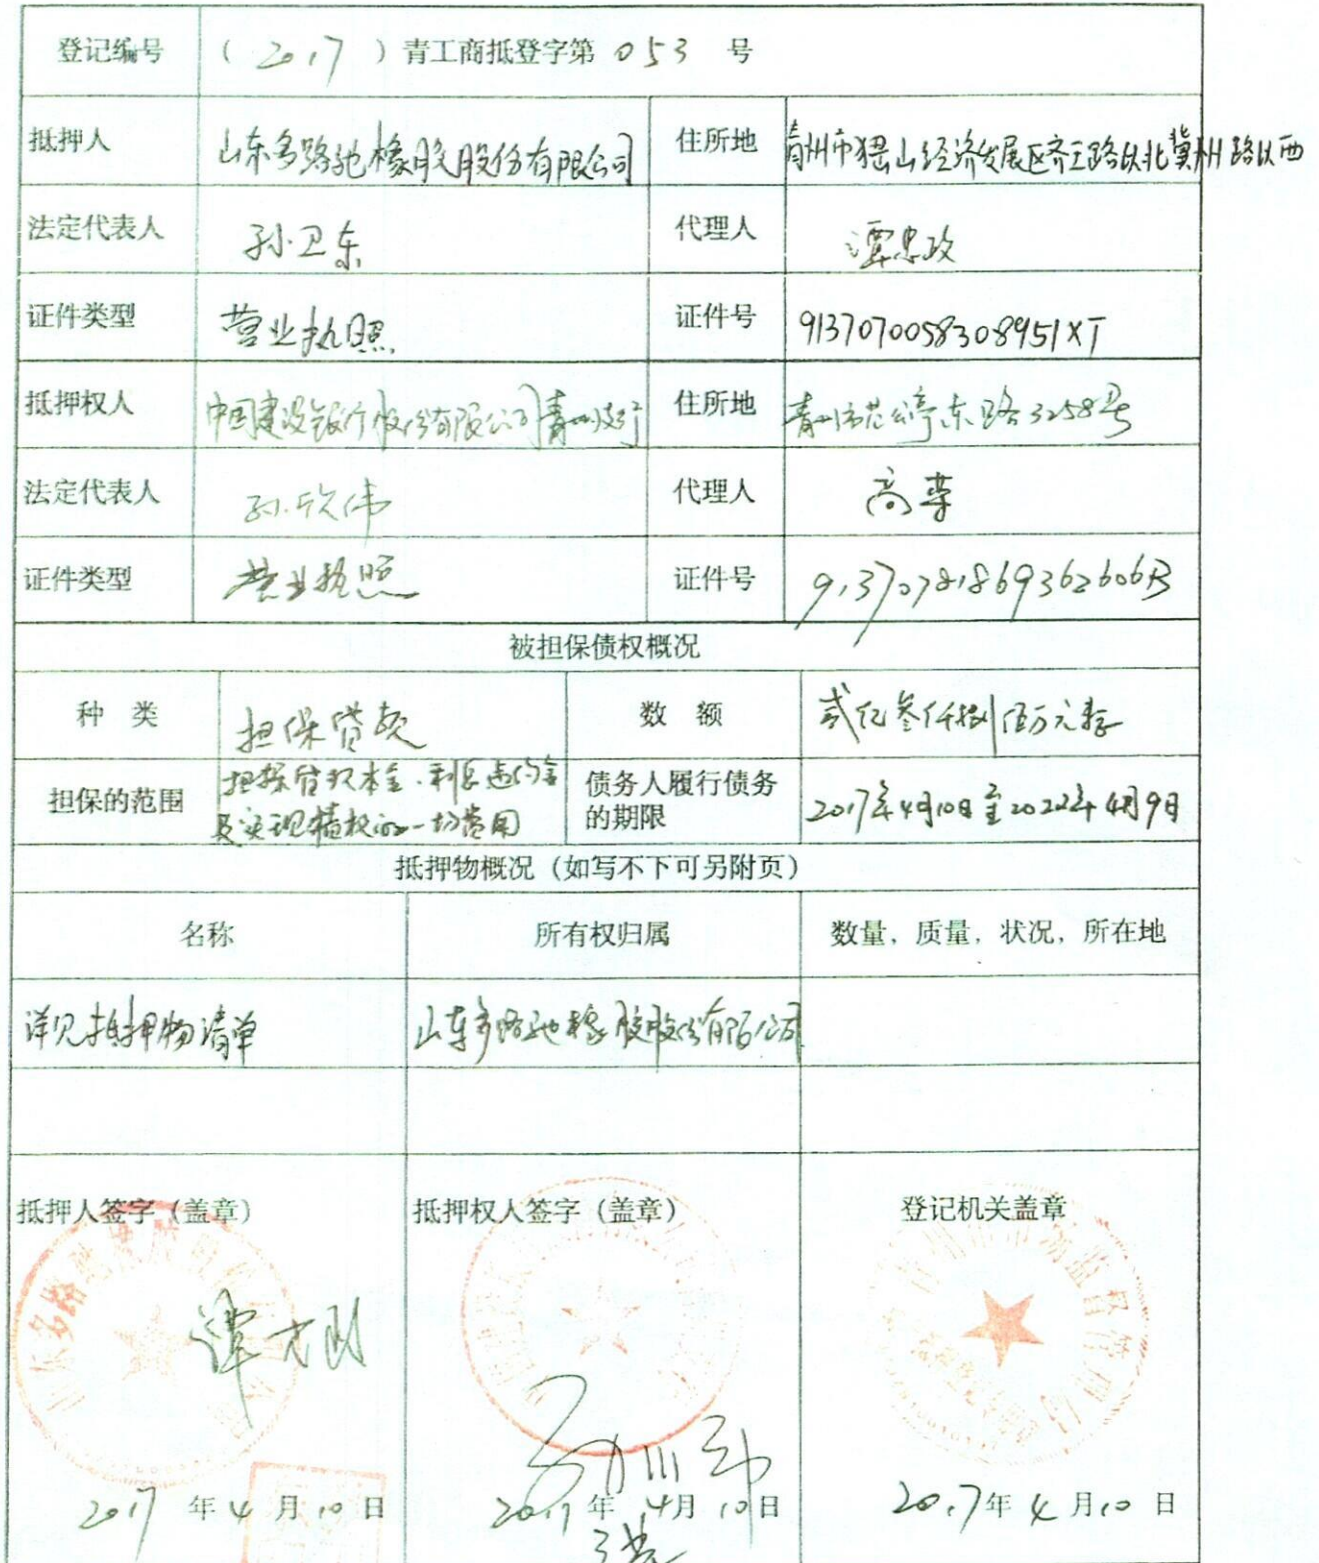 登记编号 （ 2017 ）青工商抵登字第 053 号
抵押人 山东多路驰橡胶股份有限公司 住所地 青州市猕山经济发展区齐王路以北冀州路以西
法定代表人 孙卫东 代理人 谭忠政
证件类型 营业执照 证件号 91370700583089451XT
抵押权人 中国建设银行股份有限公司青州支行 住所地 青州市范公亭东路3258号
法定代表人 孙欣伟 代理人 高
证件类型 营业执照 证件号 91370781869362606B
被担保债权概况
种 类 担保贷款 数 额 贰亿叁仟捌佰万元整
担保的范围 担保贷款本金、利息违约金
及实现债权的一切费用
债务人履行债务
的期限
2017年4月10日至2022年4月9日
抵押物概况（如写不下可另附页）
名称 所有权归属 数量，质量，状况，所在地
详见抵押物清单 山东多路驰橡胶股份有限公司
抵押人签字（盖章） 抵押权人签字（盖章） 登记机关盖章
2017 年 4 月 10 日 2017 年 4月 10日 2017年 4 月 10 日